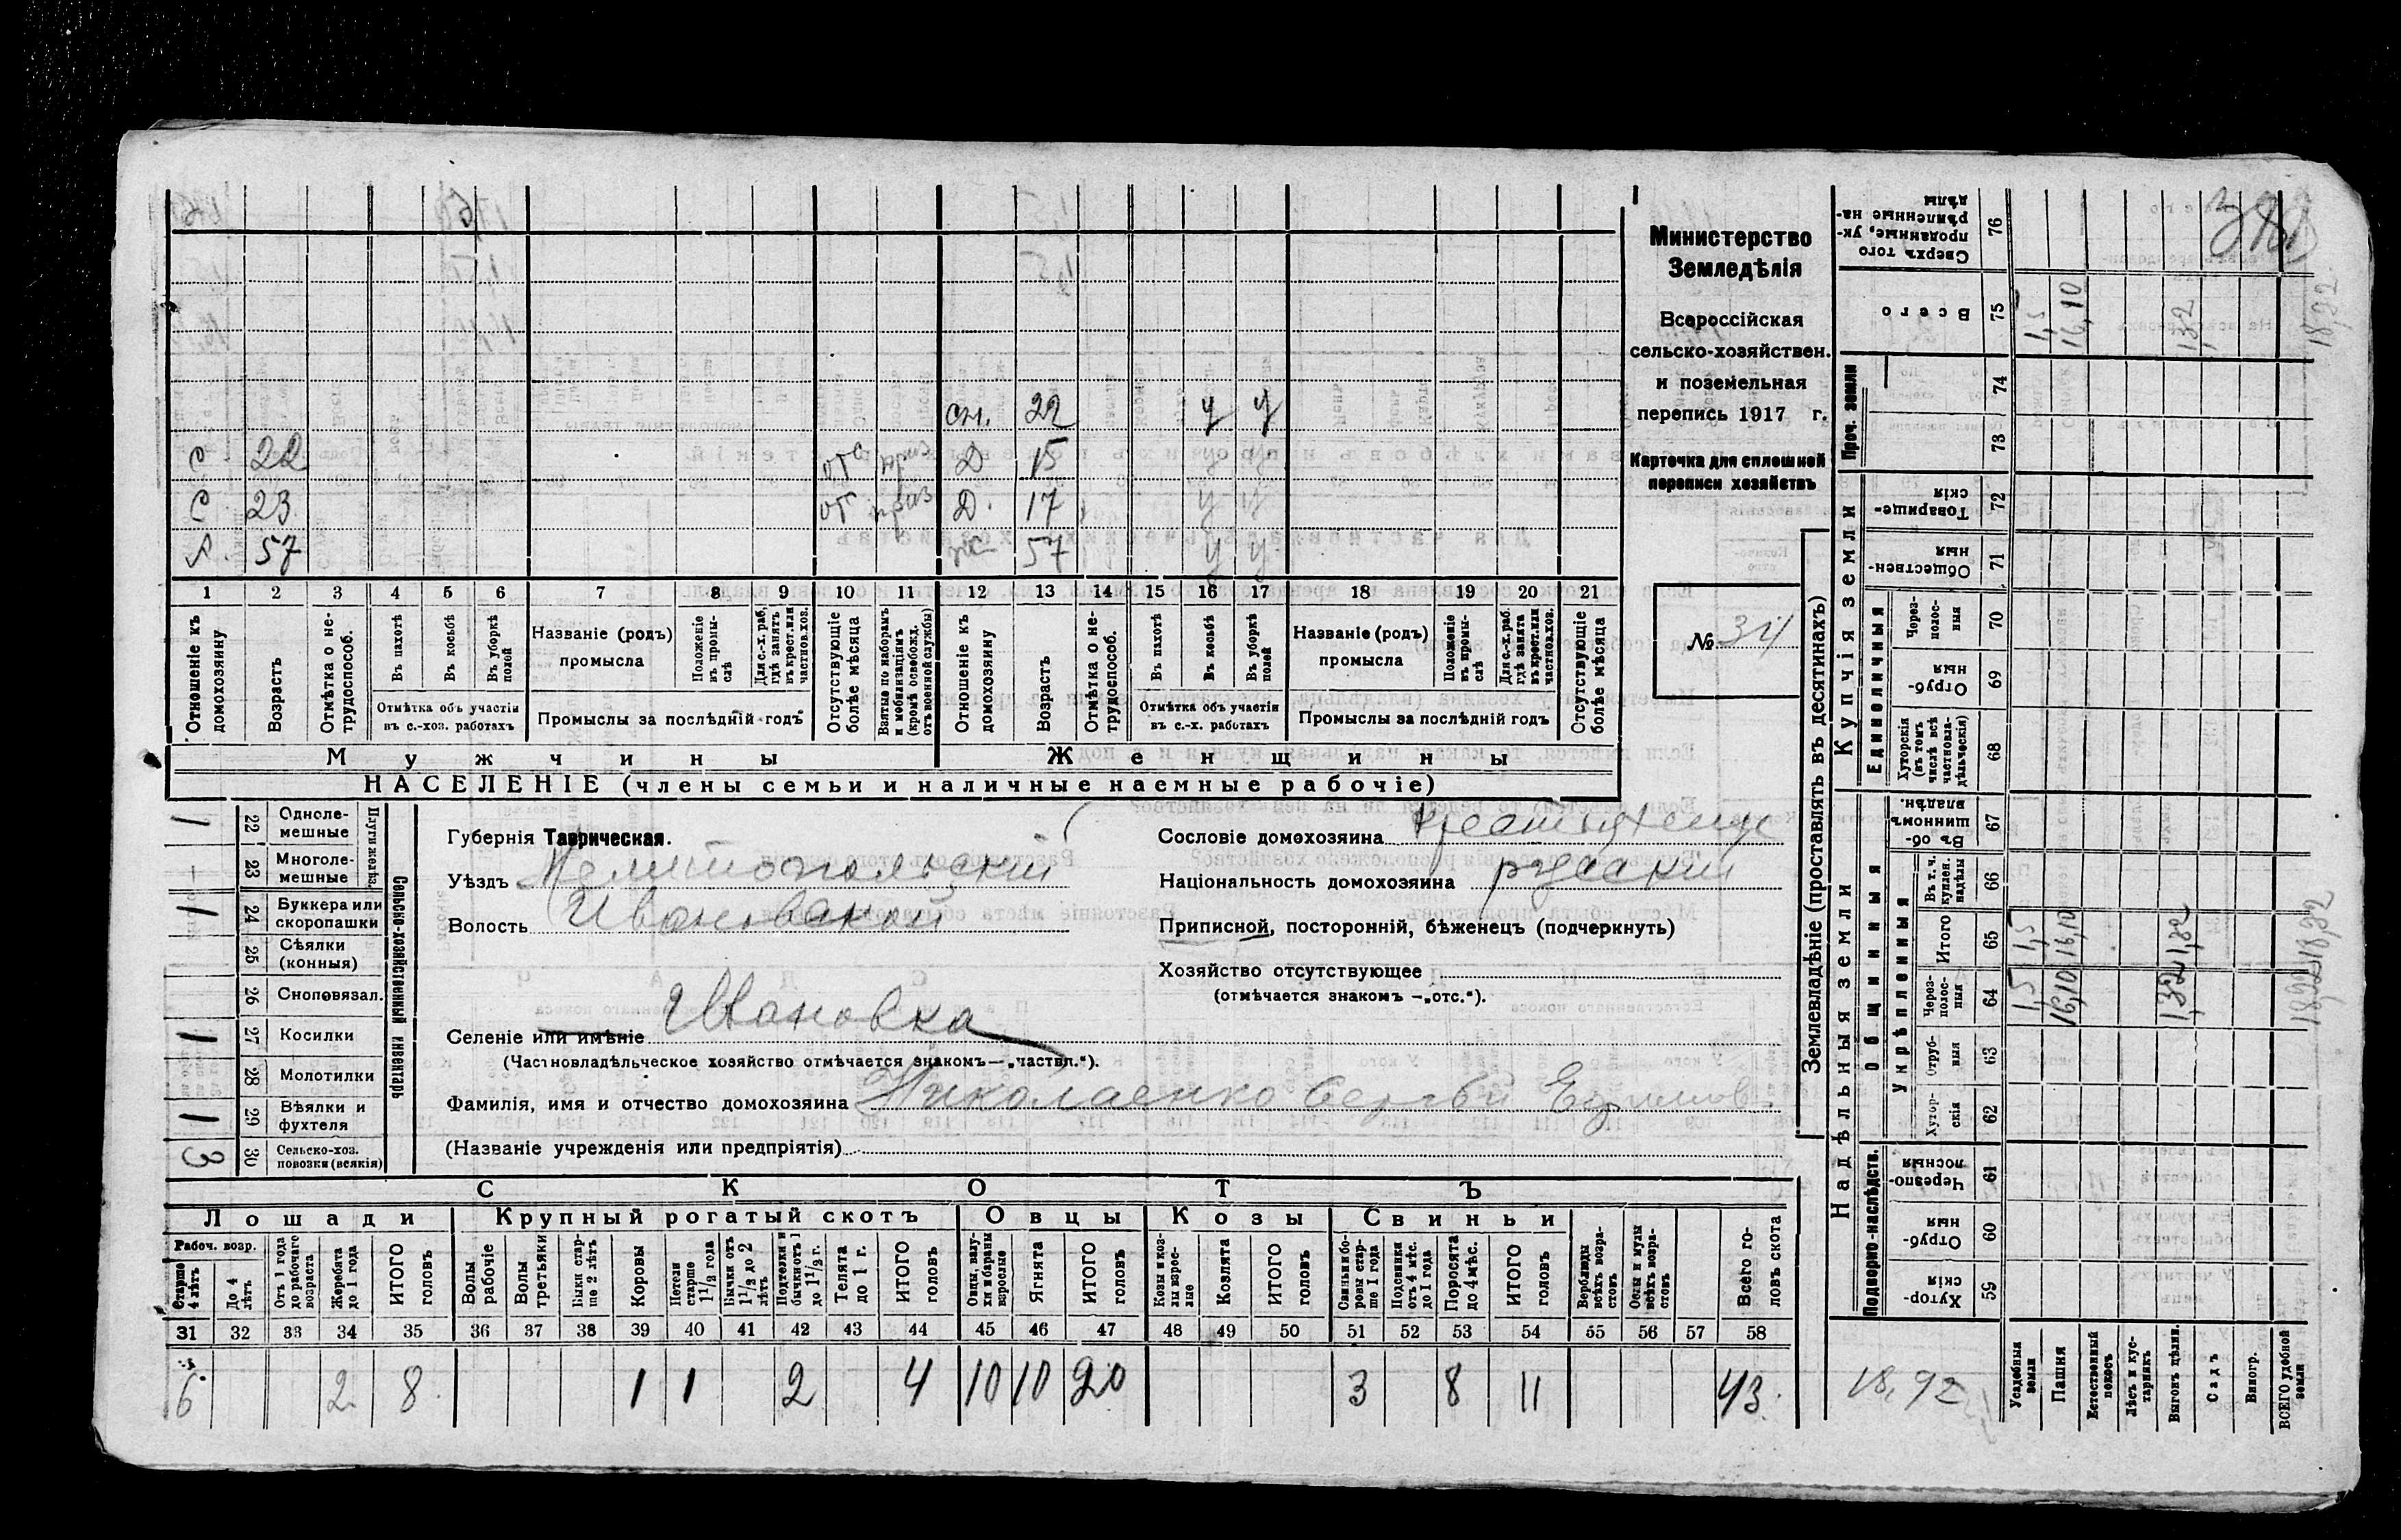 Министерство
Земледѣлія
Всероссійская
сельско-хозяйствен.
и поземельная
перепись 1917 г.
Карточка для сплошной
переписи хозяйствъ
№ 34
сн. 22 у у
С 22 отс Д 15 у у
С 23 от Д. 17 у у
57 ж 57 у у
1 2 3 4 5 6 7 8 9 10 11 12 13 14 15 16 17 18 19 20 21
Отношеніе къ домохозяину
Возрастъ
Отмѣтка о не-трудоспособ.
Въ пахотѣ
Въ косьбѣ
Въ уборкѣ полей
Отмѣтка объ участіи въ с.-хоз. работахъ
Названіе (родъ) промысла
Положеніе въ промы-слѣ
Для с.-х. раб, гдѣ занятъ въ крест. или частнов. хоз.
Промыслы за послѣдній годъ
Отсутствующіе болѣе мѣсяца
Взятые по наборамъ и мобилизаціямъ (кромѣ освобожд. отъ военной службы)
Отношеніе къ домохозяину
Возрастъ
Отмѣтка о не-трудоспособ.
Въ пахотѣ
Въ косьбѣ
Въ уборкѣ полей
Отмѣтка объ участіи въ с.-х. работахъ
Названіе (родъ) промысла
Положеніе въ промы-слѣ
Для с.-х. раб. гдѣ занята въ крест. или частнов. хоз.
Промыслы за послѣдній годъ
Отсутствующіе болѣе мѣсяца
Мужчины Женщины
НАСЕЛЕНІЕ (члены семьи и наличные наемные рабочіе)
Сельско-хозяйственный инвентарь
Плуги желѣз.
1 22 Одноле-мешные
— 23 Многоле-мешные
1 24 Буккера или скоропашки
25 Сѣялки (конныя)
26 Сноповязал.
1 27 Косилки
28 Молотилки
1 29 Вѣялки и фухтеля
3 30 Сельско-хоз. повозки (всякія)
Губернія Таврическая.
Уѣздъ Мелитопольскій
Волость Ивановской
Селеніе или имѣніе Ивановка
(Частновладѣльческое хозяйство отмѣчается знакомъ — „частвл.“).
Фамилія, имя и отчество домохозяина Николаенко Сергѣй Ефимов.
(Названіе учрежденія или предпріятія)
Сословіе домохозяина
Національность домохозяина русскій
Приписной, посторонній, бѣженецъ (подчеркнуть)
Хозяйство отсутствующее
(отмѣчается знакомъ — „отс.“).
СКОТЪ
Лошади Крупный рогатый скотъ Овцы Козы Свиньи
Рабоч. возр.
Старше 4 лѣтъ
До 4 лѣтъ
Отъ 1 года до рабочаго возраста
Жеребята до 1 года
ИТОГО головъ
Волы рабочіе
Волы третьяки
Быки стар-ше 2 лѣтъ
Коровы
Нетели старше 1 1/2 года
Бычки отъ 1 1/2 до 2 лѣтъ
Подтелки и бычки отъ 1 до 1 1/2 г.
Телята до 1 г.
ИТОГО головъ
Овцы, валу-хи и бараны взрослые
Ягнята
ИТОГО головъ
Козы и коз-лы взрос-лые
Козлята
ИТОГО головъ
Свиньи и бо-ровы стар-ше 1 года
Подсвинки отъ 4 мѣс. до 1 года
Поросята до 4 мѣс.
ИТОГО головъ
Верблюды всѣхъ возра-стовъ
Ослы и мулы всѣхъ возра-стовъ
Всего го-ловъ скота
31 32 33 34 35 36 37 38 39 40 41 42 43 44 45 46 47 48 49 50 51 52 53 54 55 56 57 58
6 2 8 1 1 2 4 10 10 20 3 8 11 43
Землевладѣніе (проставлять въ десятинахъ)
Надѣльныя земли Купчія земли Проч. земли
Подворно-наслѣдств.
Общинныя
Укрѣпленныя
Единоличныя
Хутор-скія 59
Отруб-ныя 60
Черезпо-лосныя 61
Хутор-скія 62
Отруб-ныя 63
Через-полос-ныя 64
Итого 65
Въ т. ч. куплен. надѣлы 66
Въ об-щинномъ владѣн. 67
Хуторскія (въ томъ числѣ всѣ частновла-дѣльческія) 68
Отруб-ныя 69
Через-полос-ныя 70
Обществен-ныя 71
Товарище-скія 72
73
74
Всего 75
Сверхъ того проданные, ук-рѣпленные на-дѣлы 76
Усадебныя земли 1,5 1,5 1,5
Пашня 16,10 16,10 16,10
Естественный покосъ
Лѣсъ и кус-тарникъ
Выгонъ дѣлим. 1,32 1,32 1,32
Садъ
Виногр.
ВСЕГО удобной земли 18,92 18,92 18,92
18,92